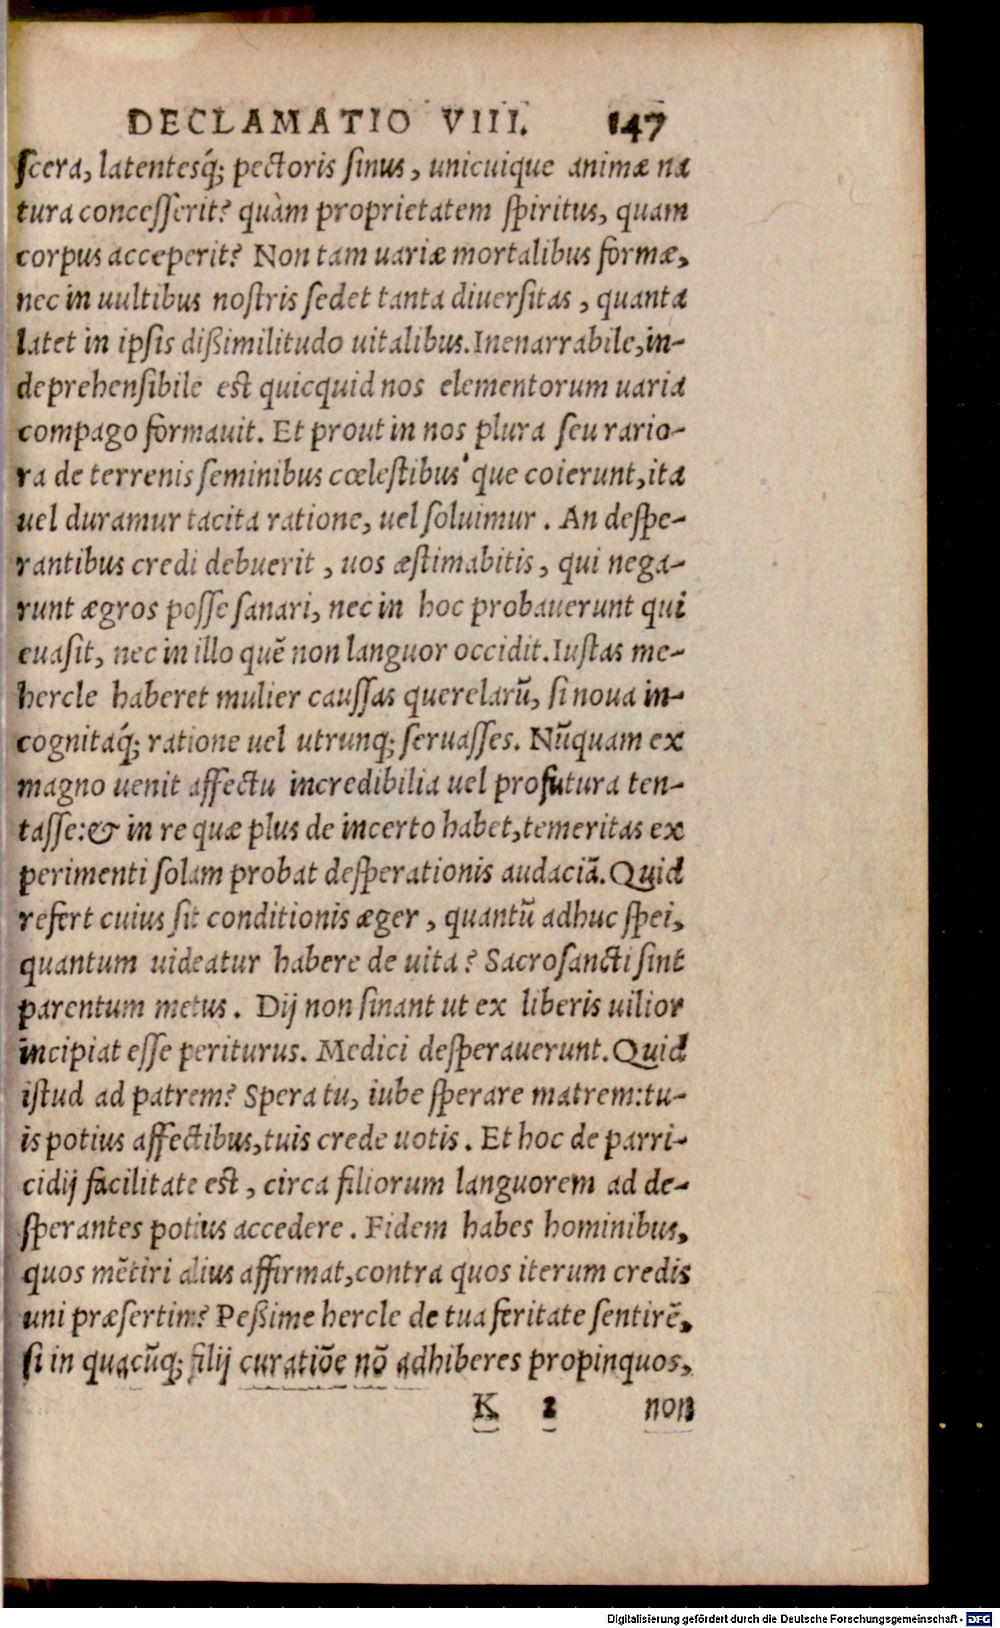 DECLAMATIO VIII. 147
scera, latentesq́; pectoris sinus, unicuique animæ na
tura concesserit? quàm proprietatem spiritus, quam
corpus acceperit? Non tam uariæ mortalibus formæ,
nec in uultibus nostris sedet tanta diuersitas, quanta
latet in ipsis dißimilitudo uitalibus. Inenarrabile, in-
deprehensibile est quicquid nos elementorum uaria
compago formauit. Et prout in nos plura seu rario-
ra de terrenis seminibus cœlestibus'que coierunt, ita
uel duramur tacita ratione, uel soluimur. An despe-
rantibus credi debuerit, uos æstimabitis, qui nega-
runt ægros posse sanari, nec in hoc probauerunt qui
euasit, nec in illo quẽ non languor occidit. Iustas me-
hercle haberet mulier caussas querelarũ, si noua in-
cognitaq́; ratione uel utrunq; seruasses. Nũquam ex
magno uenit affectu incredibilia uel profutura ten-
tasse: & in re quæ plus de incerto habet, temeritas ex
perimenti solam probat desperationis audaciã. Quid
refert cuius sit conditionis æger, quantũ adhuc spei,
quantum uideatur habere de uita? Sacrosancti sint
parentum metus. Dij non sinant ut ex liberis uilior
incipiat esse periturus. Medici desperauerunt. Quid
istud ad patrem? Spera tu, iube sperare matrem: tu-
is potius affectibus, tuis crede uotis. Et hoc de parri-
cidij facilitate est, circa filiorum languorem ad de-
sperantes potius accedere. Fidem habes hominibus,
quos mẽtiri alius affirmat, contra quos iterum credis
uni præsertim? Peßime hercle de tua feritate sentirẽ,
si in quacũq; filij curatiõe nõ adhiberes propinquos,
K 2 non
Digitalisierung gefördert durch die Deutsche Forschungsgemeinschaft - DFG